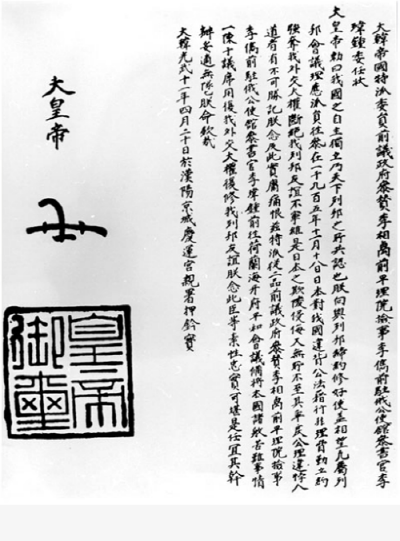 大韓帝國特派委員前議政府參贊李相卨前平理院檢事李儁前駐俄公使館參書官李
瑋鍾委任狀
大皇帝勅曰我國之自主獨立乃天下列邦之所共認也朕向與列邦締約修好使盖相望凡屬列
邦會議理應派員往參在一千九百五年十一月十八日日本對我國違背公法肆行非理脅勒立約
强奪我外交大權斷絶我列邦友誼不寧維是日本之欺凌侵侮无所不至其乖戾公理違悖人
道者有不可勝記朕念及此實屬痛恨玆特派從二品前議政府參贊李相卨前平理院檢事
李儁前駐俄公使館參書官李瑋鍾前往荷蘭海牙府平和會議備將本國諸般苦難事情
一陳于議席用復我外交大權復修我列邦友誼朕念此臣等素性忠實可堪是任宜其幹
辦妥適無係朕命欽哉
大韓光武十一年四月二十日於漢陽京城慶運宮親署押鈐寶
大皇帝
皇帝
御璽